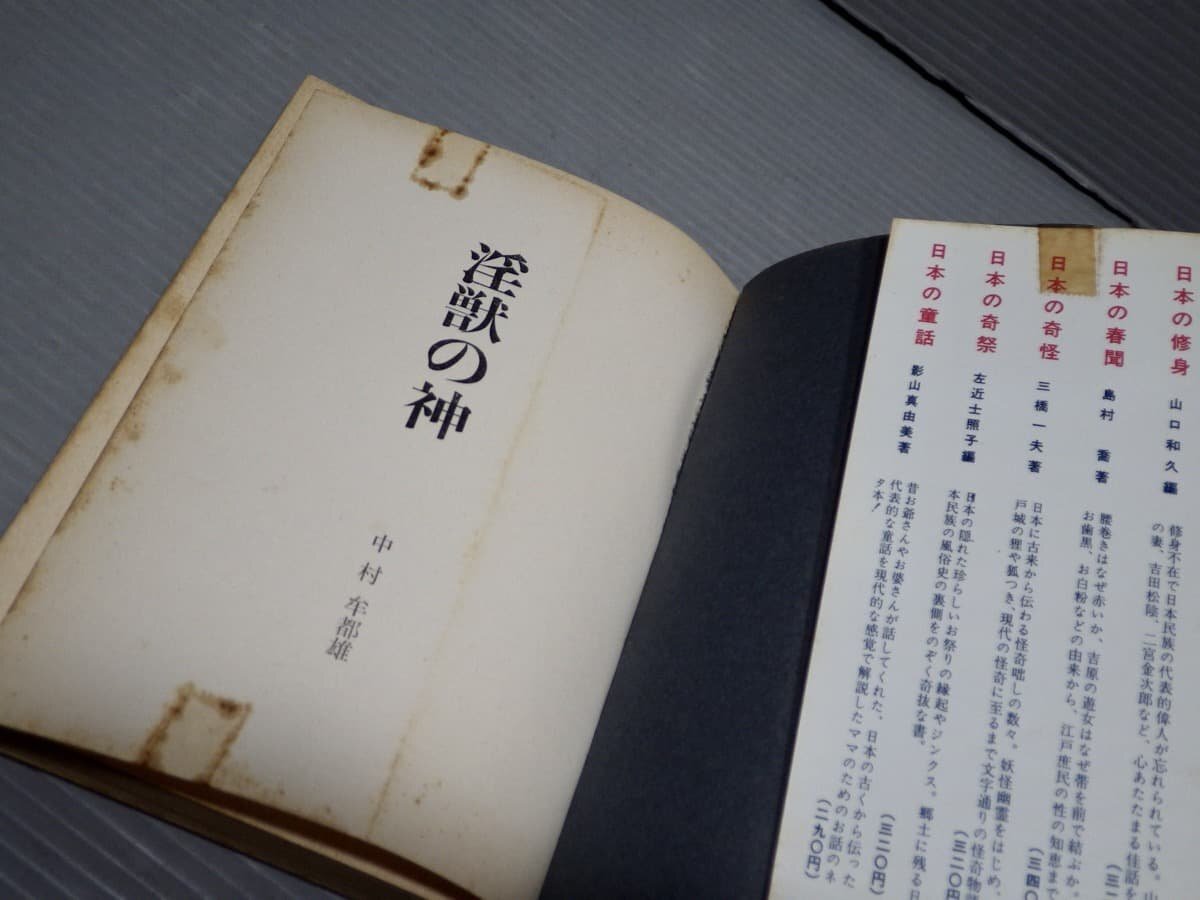 日本の修身 山口和久編
修身不在で日本民族の代表的偉人が忘れられている。山
の妻、吉田松陰、二宮金次郎など、心あたたまる佳話を
(三二
日本の春聞 島村 喬著
腰巻きはなぜ赤いか、吉原の遊女はなぜ帯を前で結ぶか。
お歯黒、お白粉などの由来から、江戸庶民の性の知恵まで
(三四〇
日本の奇怪 三橋一夫著
日本に古来から伝わる怪奇咄しの数々。妖怪幽霊をはじめ、
戸城の狸や狐つき、現代の怪奇に至るまで文字通りの怪奇物
(三二〇円
日本の奇祭 左近士照子編
日本の隠れた珍らしいお祭りの縁起やジンクス。郷土に残る日
本民族の風俗史の裏側をのぞく奇抜な書。
(三二〇円)
日本の童話 影山真由美著
昔お爺さんやお婆さんが話してくれた、日本の古くから伝った
代表的な童話を現代的な感覚で解説したママのためのお話のネ
タ本!
(二九〇円)
淫獣の神
中村 牟都雄